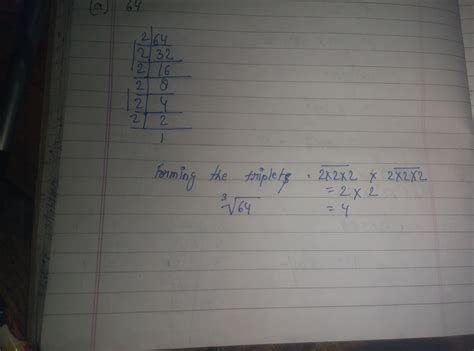 (a) 64
2 | 64
2 | 32
2 | 16
2 | 8
2 | 4
2 | 2
1
Forming the triplets = 2×2×2 × 2×2×2
= 2 × 2
∛64 = 4